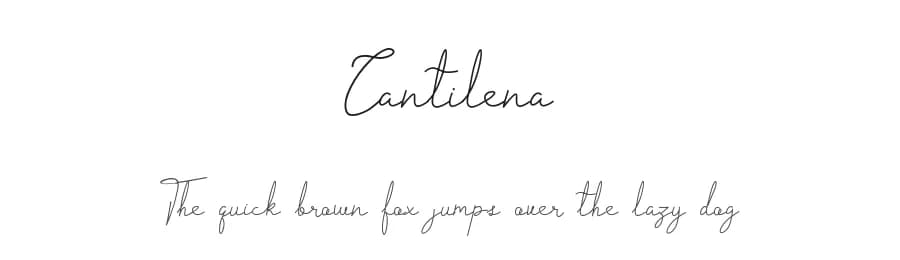 Cantilena
The quick brown fox jumps over the lazy dog